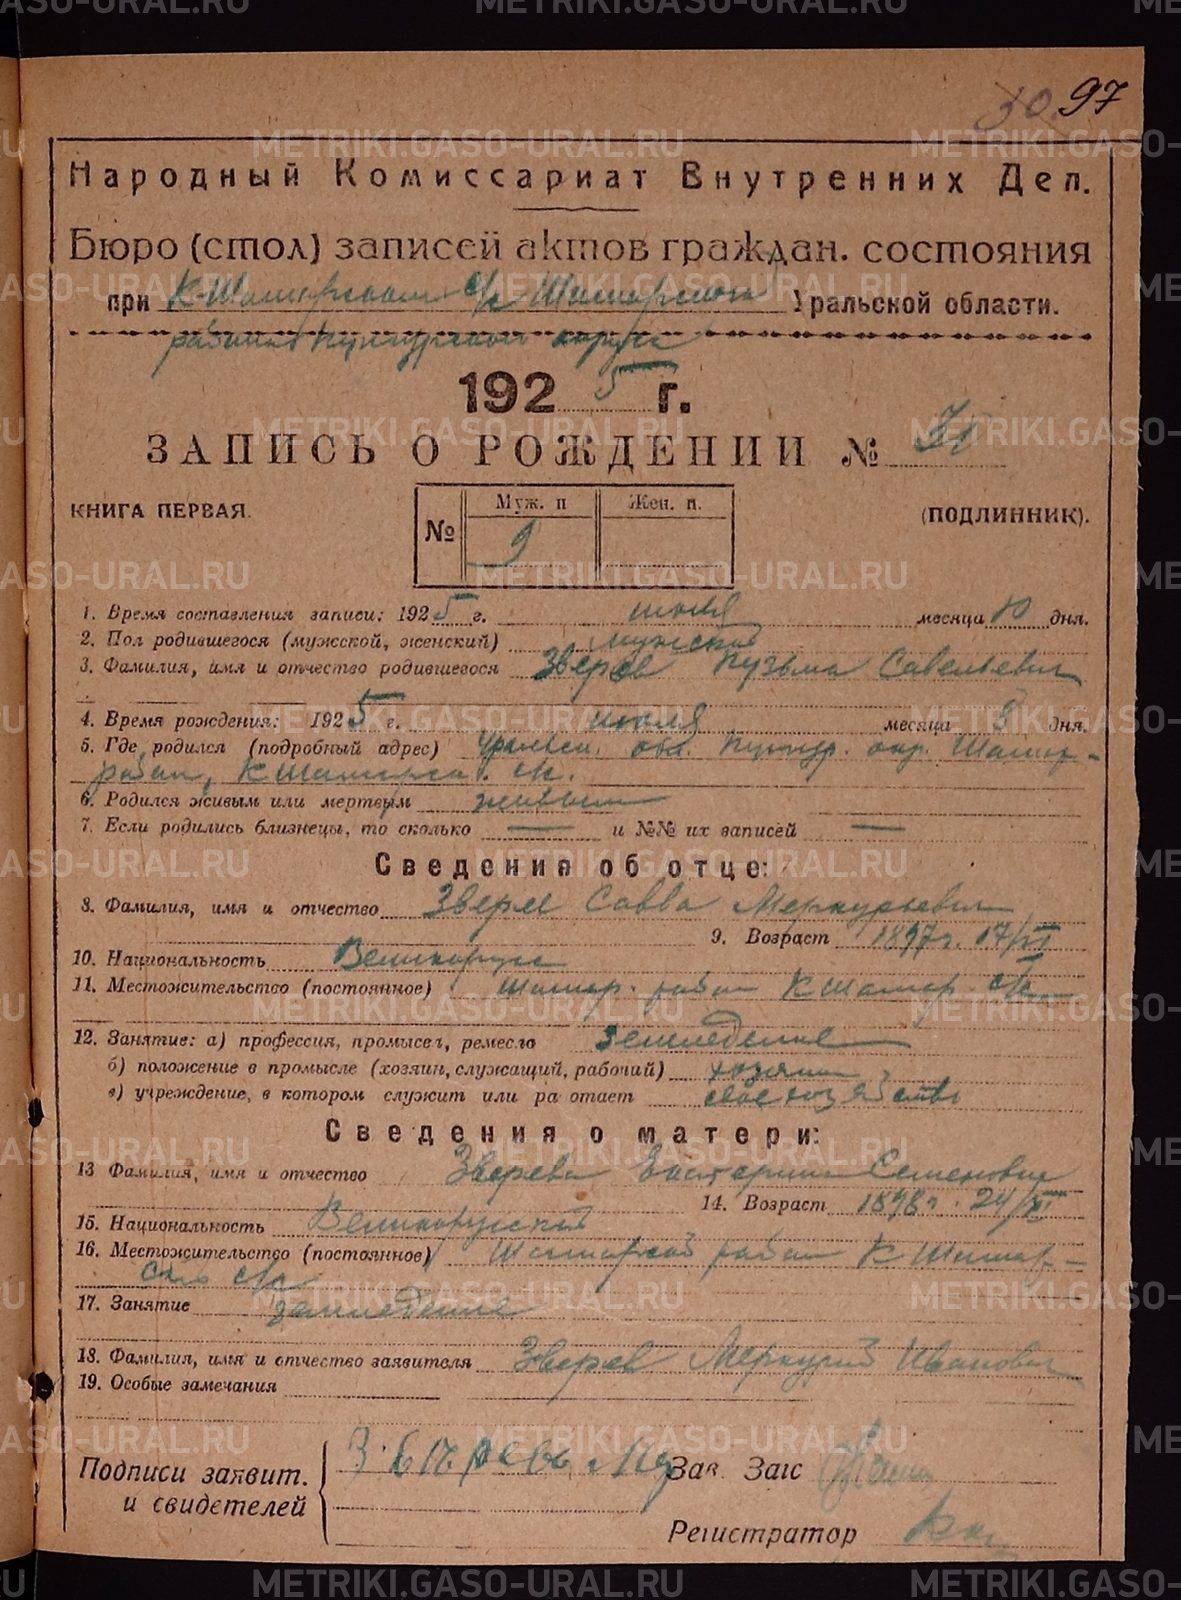 30. 97
Народный Комиссариат Внутренних Дел.
Бюро (стол) записей актов граждан. состояния
при К-Шамарском с/с Шамарского Уральской области.
района Кунгурского округа
1925 г.
ЗАПИСЬ О РОЖДЕНИИ №
КНИГА ПЕРВАЯ.
№ Муж. п Жен. п.
9
(ПОДЛИННИК).
1. Время составления записи: 1925 г. июля месяца 10 дня.
2. Пол родившегося (мужской, женский) мужской
3. Фамилия, имя и отчество родившегося Зверев Кузьма Савельевич
4. Время рождения: 1925 г. июля месяца 9 дня.
5. Где родился (подробный адрес) Уральск. обл. Кунгур. окр. Шамар-
район, К Шамарск. с/с.
6. Родился живым или мертвым живым
7. Если родились близнецы, то сколько — и №№ их записей —
Сведения об отце:
8. Фамилия, имя и отчество Зверев Савва Меркурьевич
9. Возраст 1897г. 17/
10. Национальность Великорусс
11. Местожительство (постоянное) Шамар. район К Шамар. с/с
12. Занятие: а) профессия, промысел, ремесло земледелие
б) положение в промысле (хозяин, служащий, рабочий) хозяин
в) учреждение, в котором служит или ра отает свое хозяйство
Сведения о матери:
13 Фамилия, имя и отчество Зверева Екатерина Семеновна
14. Возраст 1898г. 24/XI
15. Национальность Великорусская
16. Местожительство (постоянное) Шамарский район К Шамар-
ско с/с
17. Занятие земледелие
18. Фамилия, имя и отчество заявителя Зверев Меркурий Иванович
19. Особые замечания
Подписи заявит.
и свидетелей
Зав. Загс
Регистратор
METRIKI.GASO-URAL.RU